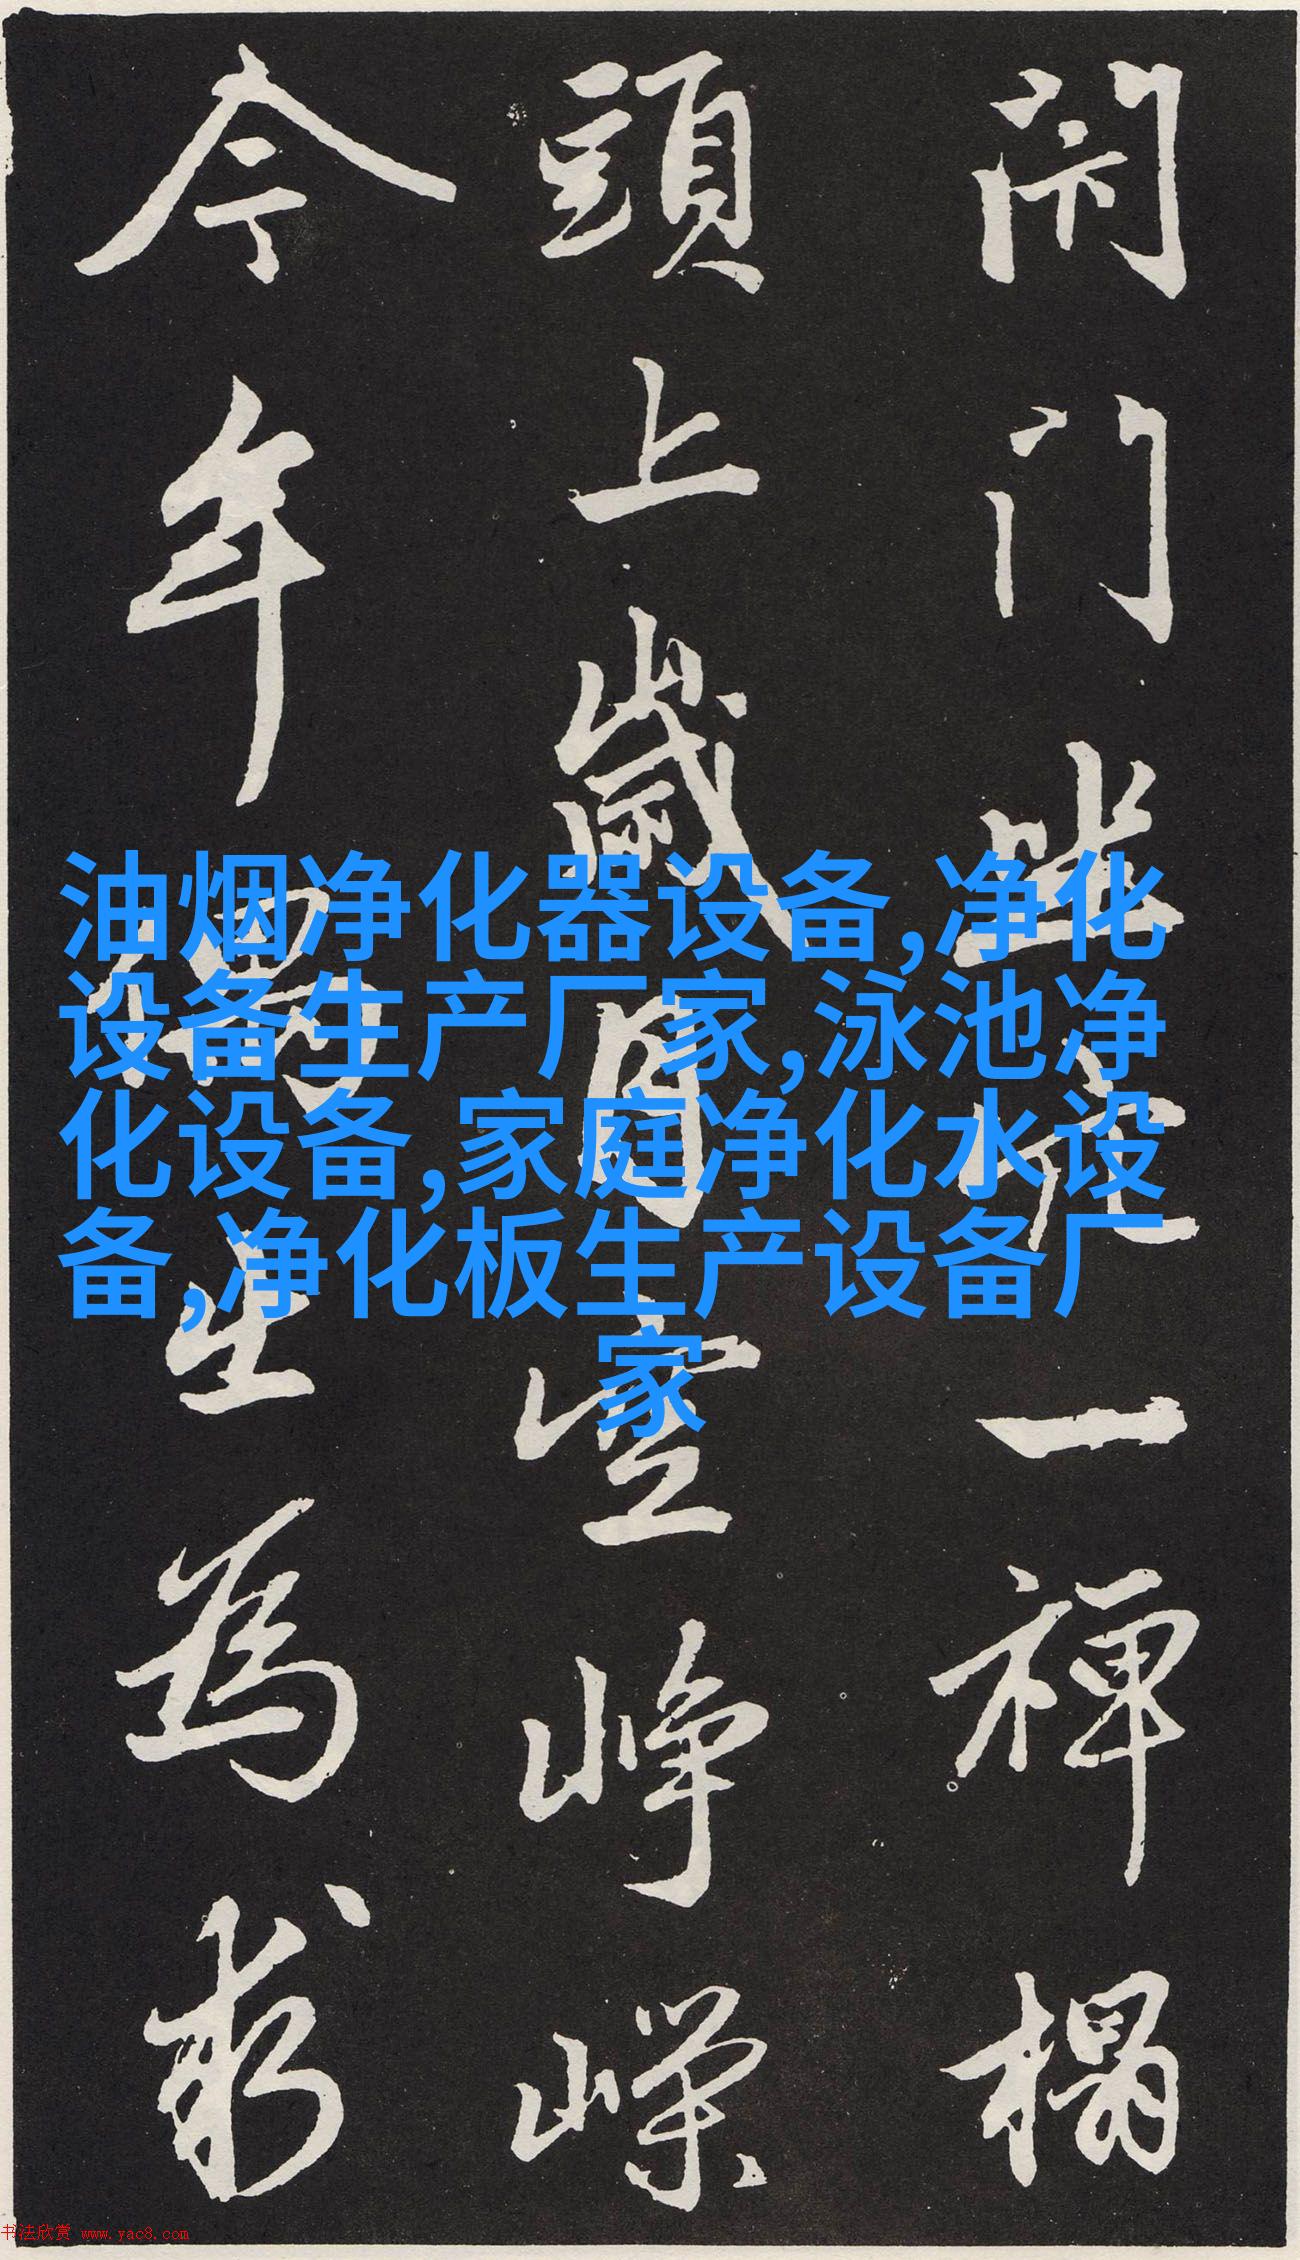 閉門坐穴一禪榻
頭上歲月空崢嶸
今年偶出為求
油烟净化器设备,净化
设备生产厂家,泳池净
化设备,家庭净化水设
备,净化板生产设备厂
家
书法欣赏 www.yac8.com